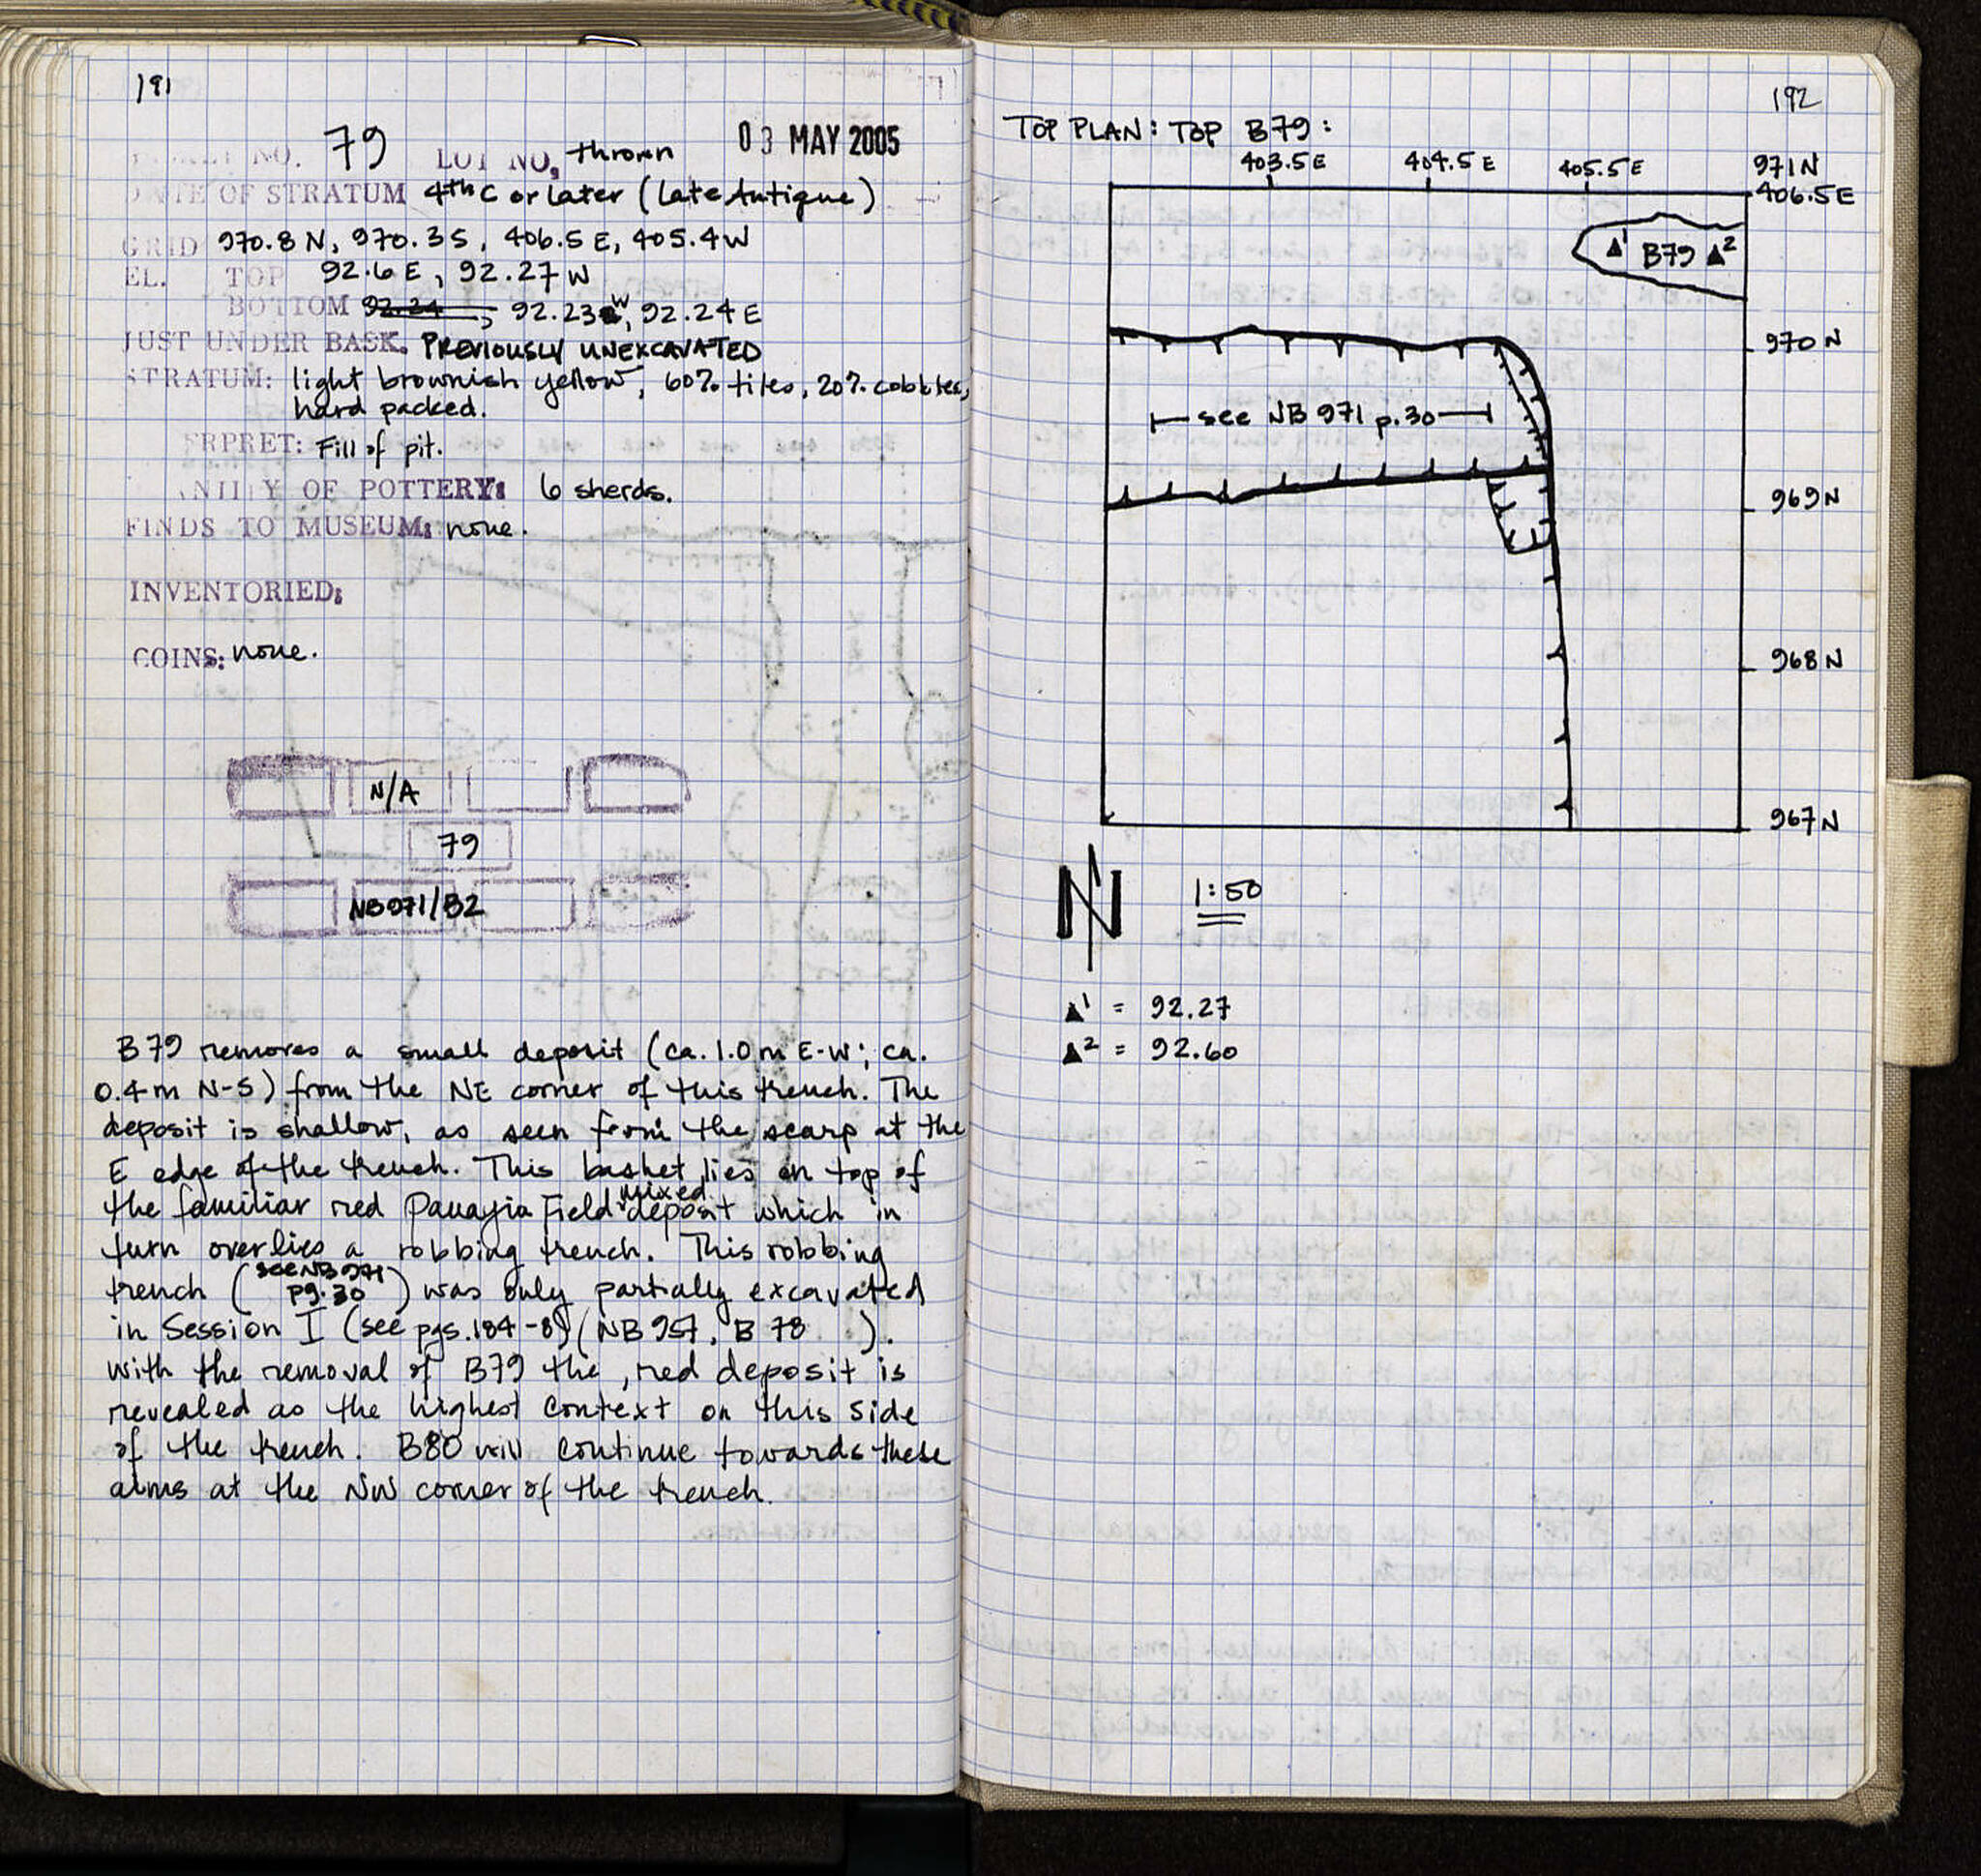 191
BASKET NO. 79 LOT NO. thrown 03 MAY 2005
DATE OF STRATUM 4th C or later (Late Antique)
GRID 970.8 N, 970.3 S, 406.5 E, 405.4 W
EL. TOP 92.6 E, 92.27 W
BOTTOM 92.24, 92.23 W, 92.24 E
JUST UNDER BASK. PREVIOUSLY UNEXCAVATED
STRATUM: light brownish yellow, 60% tiles, 20% cobbles,
hard packed.
ERPRET: Fill of pit.
ANTITY OF POTTERY: 6 sherds.
FINDS TO MUSEUM: none.
INVENTORIED:
COINS: none.
N/A
79
NB971/B2
B79 removes a small deposit (ca. 1.0 m E-W; ca.
0.4 m N-S) from the NE corner of this trench. The
deposit is shallow, as seen from the scarp at the
E edge of the trench. This basket lies on top of
the familiar red Panayia Field mixed deposit which in
turn overlies a robbing trench. This robbing
trench (see NB971 pg. 30) was only partially excavated
in Session I (see pgs. 184-8) (NB 957, B 78 ).
With the removal of B79 the, red deposit is
revealed as the highest context on this side
of the trench. B80 will continue towards these
aims at the NW corner of the trench.
192
TOP PLAN: TOP B79:
403.5 E 404.5 E 405.5 E 971 N
406.5 E
▲1 B79 ▲2
970 N
see NB 971 p. 30
969 N
968 N
967 N
N 1:50
▲1 = 92.27
▲2 = 92.60